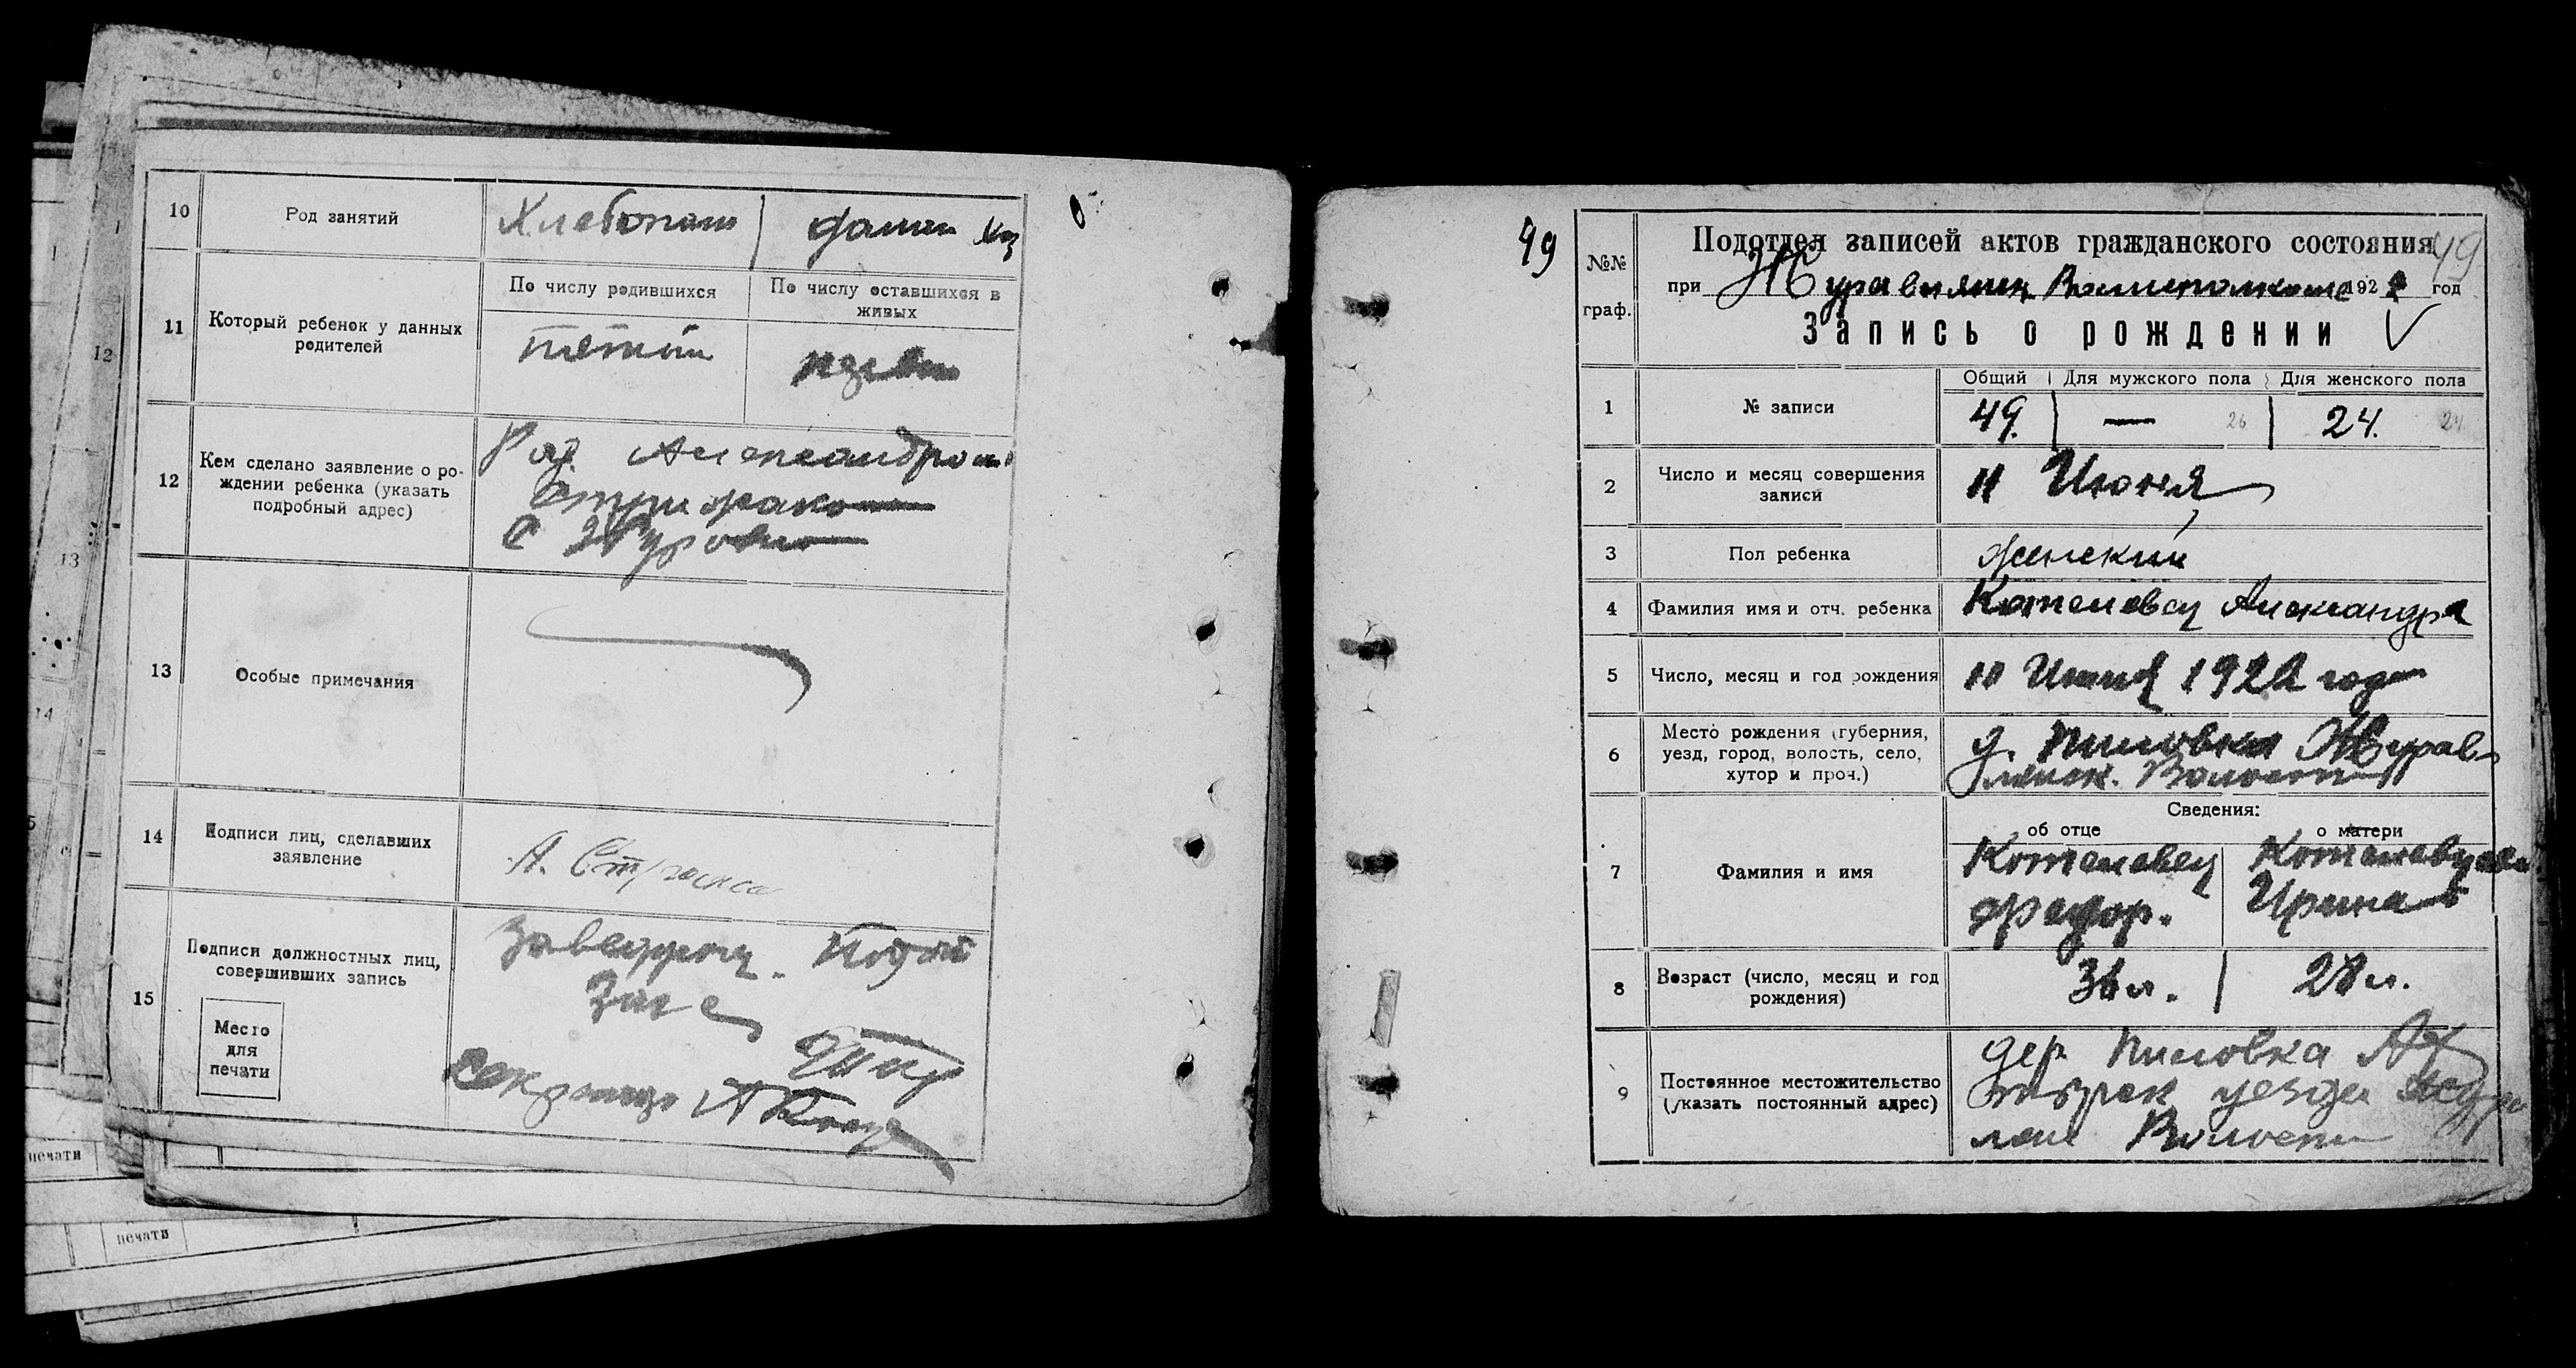 10
Род занятий
Хлебопаш
домаш хоз
11
Который ребенок у данных
родителей
По числу родившихся
По числу оставшихся в
живых
пятый
12
Кем сделано заявление о ро-
ждении ребенка (указать
подробный адрес)
Александром
С
13
Особые примечания
14
Подписи лиц, сделавших
заявление
А.
15
Подписи должностных лиц,
совершивших запись
Место
для
печати
Заведующ. Подот
Загс
секретарь А
12
13
14
печати
печати
49
49
№№
граф.
Подотдел записей актов гражданского состояния
при Журавлинск Волисполкоме 1922 год
Запись о рождении
1
№ записи
Общий
Для мужского пола
Для женского пола
49.
—
26
24.
24
2
Число и месяц совершения
записи
11 Июня
3
Пол ребенка
женский
4
Фамилия имя и отч. ребенка
Котелевец Александра
5
Число, месяц и год рождения
10 Июня 1922 года
6
Место рождения (губерния,
уезд, город, волость, село,
хутор и проч.)
д. Пиловка Журав-
линск. Волости
Сведения:
об отце
о матери
7
Фамилия и имя
Котелевец
Федор.
Котелевцева
Ирина
8
Возраст (число, месяц и год
рождения)
36 л.
28 л.
9
Постоянное местожительство
(указать постоянный адрес)
дер. Пиловка
уезда
Волости